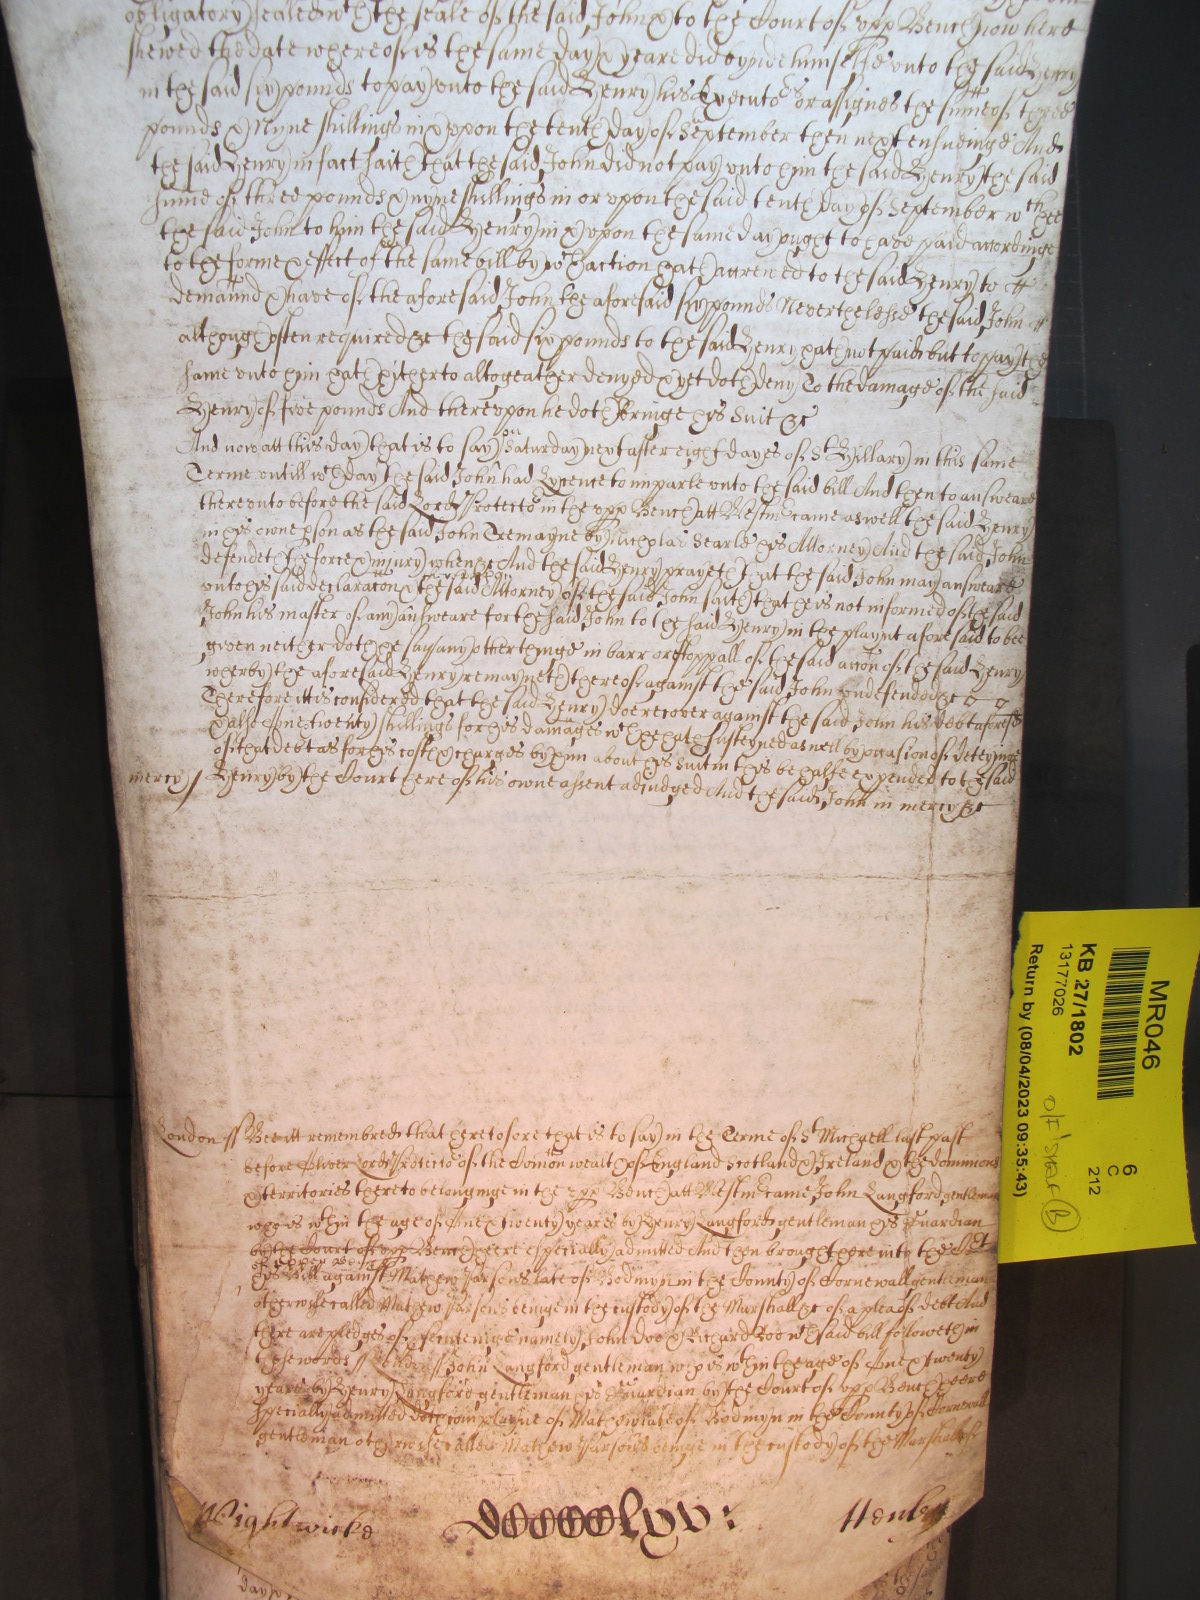 obligatory sealed wth the seale of the said John & to the Court of upp Bench now here
shewed the date whereof is the same day & yeare did bynde himselfe unto the said Henry
in the said six pounds to pay unto the said Henry his Executors or assignes the sume of three
pounds & Nyne shillings in & upon the tenth day of September then next ensueinge And
the said Henry in fact saith that the said John did not pay unto him the said Henry the said
sume of three pounds & nyne shillings in or upon the said tenth day of September wch hee
the said John to him the said Henry in & upon the same day ought to have paid accordinge
to the forme & effect of the same bill by wch action hath accrewed to the said Henry to
demaund & have of the aforesaid John the aforesaid six pounds Neverthelesse the said John
although often required &c the said six pounds to the said Henry hath not paid but to pay the
same unto him hath hitherto altogeather denyed & yet doth deny To the damage of the said
Henry of five pounds And thereupon he doth bringe his suit &c
And now att this day that is to say on Saturday next after eight dayes of St Hillary in this same
Terme untill wch day the said John had lycence to imparle unto the said bill And then to answeare
thereunto before the said Lord Protector in the upp Bench att Westmr came aswell the said Henry
in his owne pson as the said John Tremayne by Nicholas Searle his Attorney And the said John
defendeth the force & iniury when &c And the said Henry prayeth that the said John may answeare
unto his said declaracon & the said Attorney of the said John saith that he is not informed of the said
John his master of any answeare for the said John to the said Henry in the playnt aforesaid to bee
given neither doth he say any other thinge in barr or estoppall of the said accon of the said Henry
wherby the aforesaid Henry remayneth thereof against the said John undefended &c
Therefore itt is considered that the said Henry doe recover against the said John his debt aforesd
& alsoe One & twenty shillings for his damages wch he hath susteyned aswell by occasion of deteyninge
of that debt as for his costs & charges by him about his suit in this behalfe expended to the said
mercy // Henry by the Court here of his owne assent adiudged And the said John in mercy &c
London // Bee itt remembred that heretofore that is to say in the Terme of St Michaell last past
before Oliver Lord Protector of the Comon wealth of England Scotland & Ireland & the dominions
& territories thereto belonginge in the upp Bench att Westmr came John Langford gentleman
who is wthin the age of One & twenty yeares by Henry Langford gentleman his Guardian
by the Court of upp Bench here especially admitted And then brought here into the Court
his Bill against Mathew Parsons late of Bodmyn in the County of Cornewall gentleman
otherwise called Mathew Parsons beinge in the custody of the Marshall &c of a plea of debt And
there are pledges of psecutinge namely John Doe & Richard Roo wch said bill followeth in
these words // London // John Langford gentleman who is wthin the age of One & twenty
yeares by Henry Langford gentleman his Guardian by the Court of upp Bench here
specially admitted doth complayne of Mathew late of Bodmyn in the County of Cornewall
gentleman otherwise called Mathew Parsons beinge in the custody of the Marshall &c
Wightwicke
Henley
day
MR046
KB 27/1802
13177026
Return by (08/04/2023 09:35:43)
6
C
212
O/F SHELF (B)